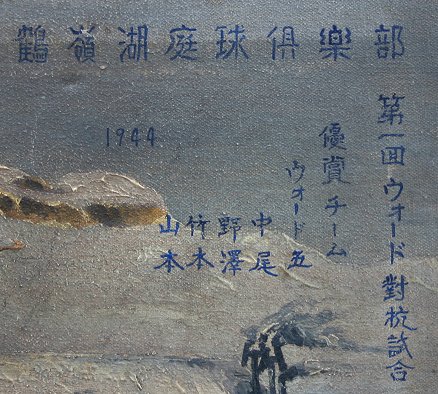 鶴嶺湖庭球俱樂部
第一回ウォード對抗試合
優賞チーム
ウォード五
中尾
野澤
竹本
山本
1944